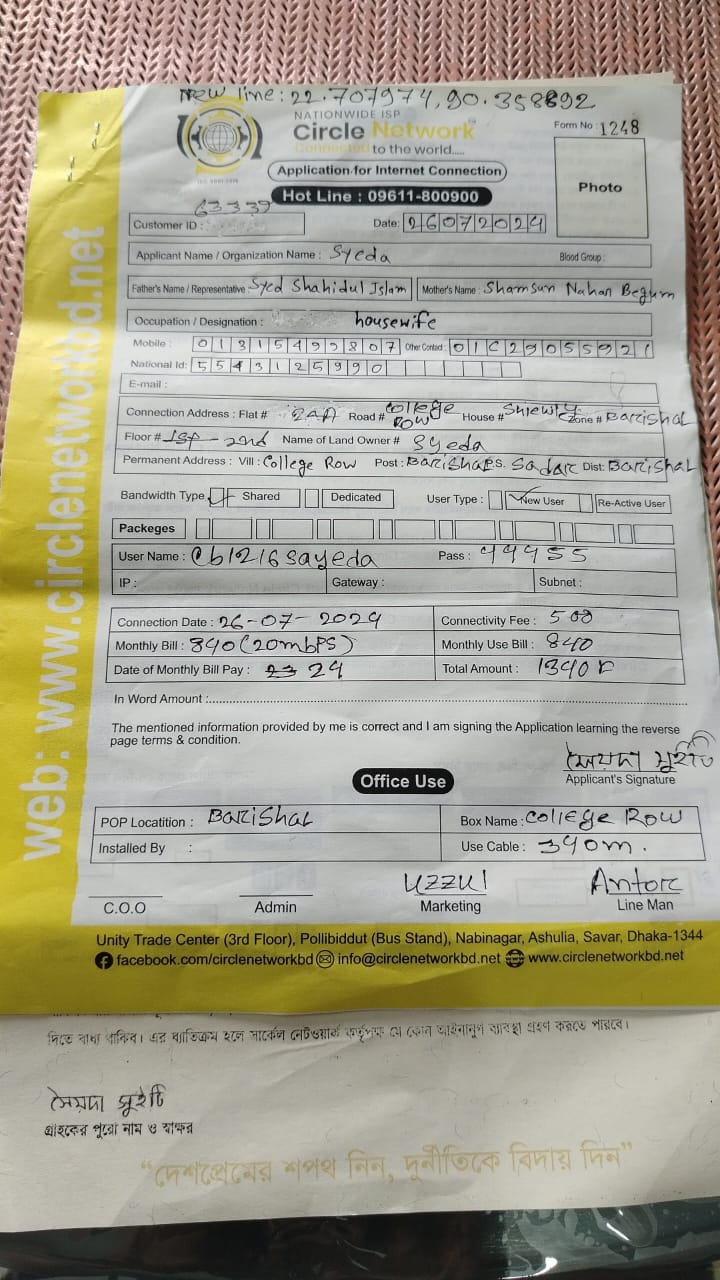 New line: 22.707974, 90.358892
NATIONWIDE ISP
Circle Network
Connected to the world.....
Form No : 1248
Application for Internet Connection
Photo
Hot Line : 09611-800900
Customer ID : 63339
Date: 26072024
Applicant Name / Organization Name : Syeda Blood Group :
Father's Name / Representative : Syed Shahidul Islam Mother's Name : Shamsun Nahar Begum
Occupation / Designation : housewife
Mobile : 01315499807 Other Contact :
National Id: 5543125990
E-mail :
Connection Address : Flat # Road # College Row House # Zone # Barishal
Floor # 2nd Name of Land Owner # Syeda
Permanent Address : Vill : College Row Post : Barishal P.S. Sadar Dist: Barishal
Bandwidth Type Shared Dedicated User Type : New User Re-Active User
Packeges
User Name : cb1216sayeda Pass :
IP : Gateway : Subnet :
Connection Date : 26-07-2024 Connectivity Fee : 500
Monthly Bill : 840 (20mbps) Monthly Use Bill : 840
Date of Monthly Bill Pay : 23 24 Total Amount : 1340
In Word Amount :
The mentioned information provided by me is correct and I am signing the Application learning the reverse
page terms & condition.
সৈয়দা সুইটি
Applicant's Signature
Office Use
POP Locatition : Barishal Box Name : College Row
Installed By : Use Cable : 340m.
Uzzul Antor
C.O.O Admin Marketing Line Man
Unity Trade Center (3rd Floor), Pollibiddut (Bus Stand), Nabinagar, Ashulia, Savar, Dhaka-1344
facebook.com/circlenetworkbd info@circlenetworkbd.net www.circlenetworkbd.net
web: www.circlenetworkbd.net
দিতে বাধ্য থাকিব। এর ব্যতিক্রম হলে সার্কেল নেটওয়ার্ক কর্তৃপক্ষ যে কোন আইনানুগ ব্যবস্থা গ্রহণ করতে পারবে।
সৈয়দা সুইটি
গ্রাহকের পুরো নাম ও স্বাক্ষর
“দেশপ্রেমের শপথ নিন, দুর্নীতিকে বিদায় দিন”